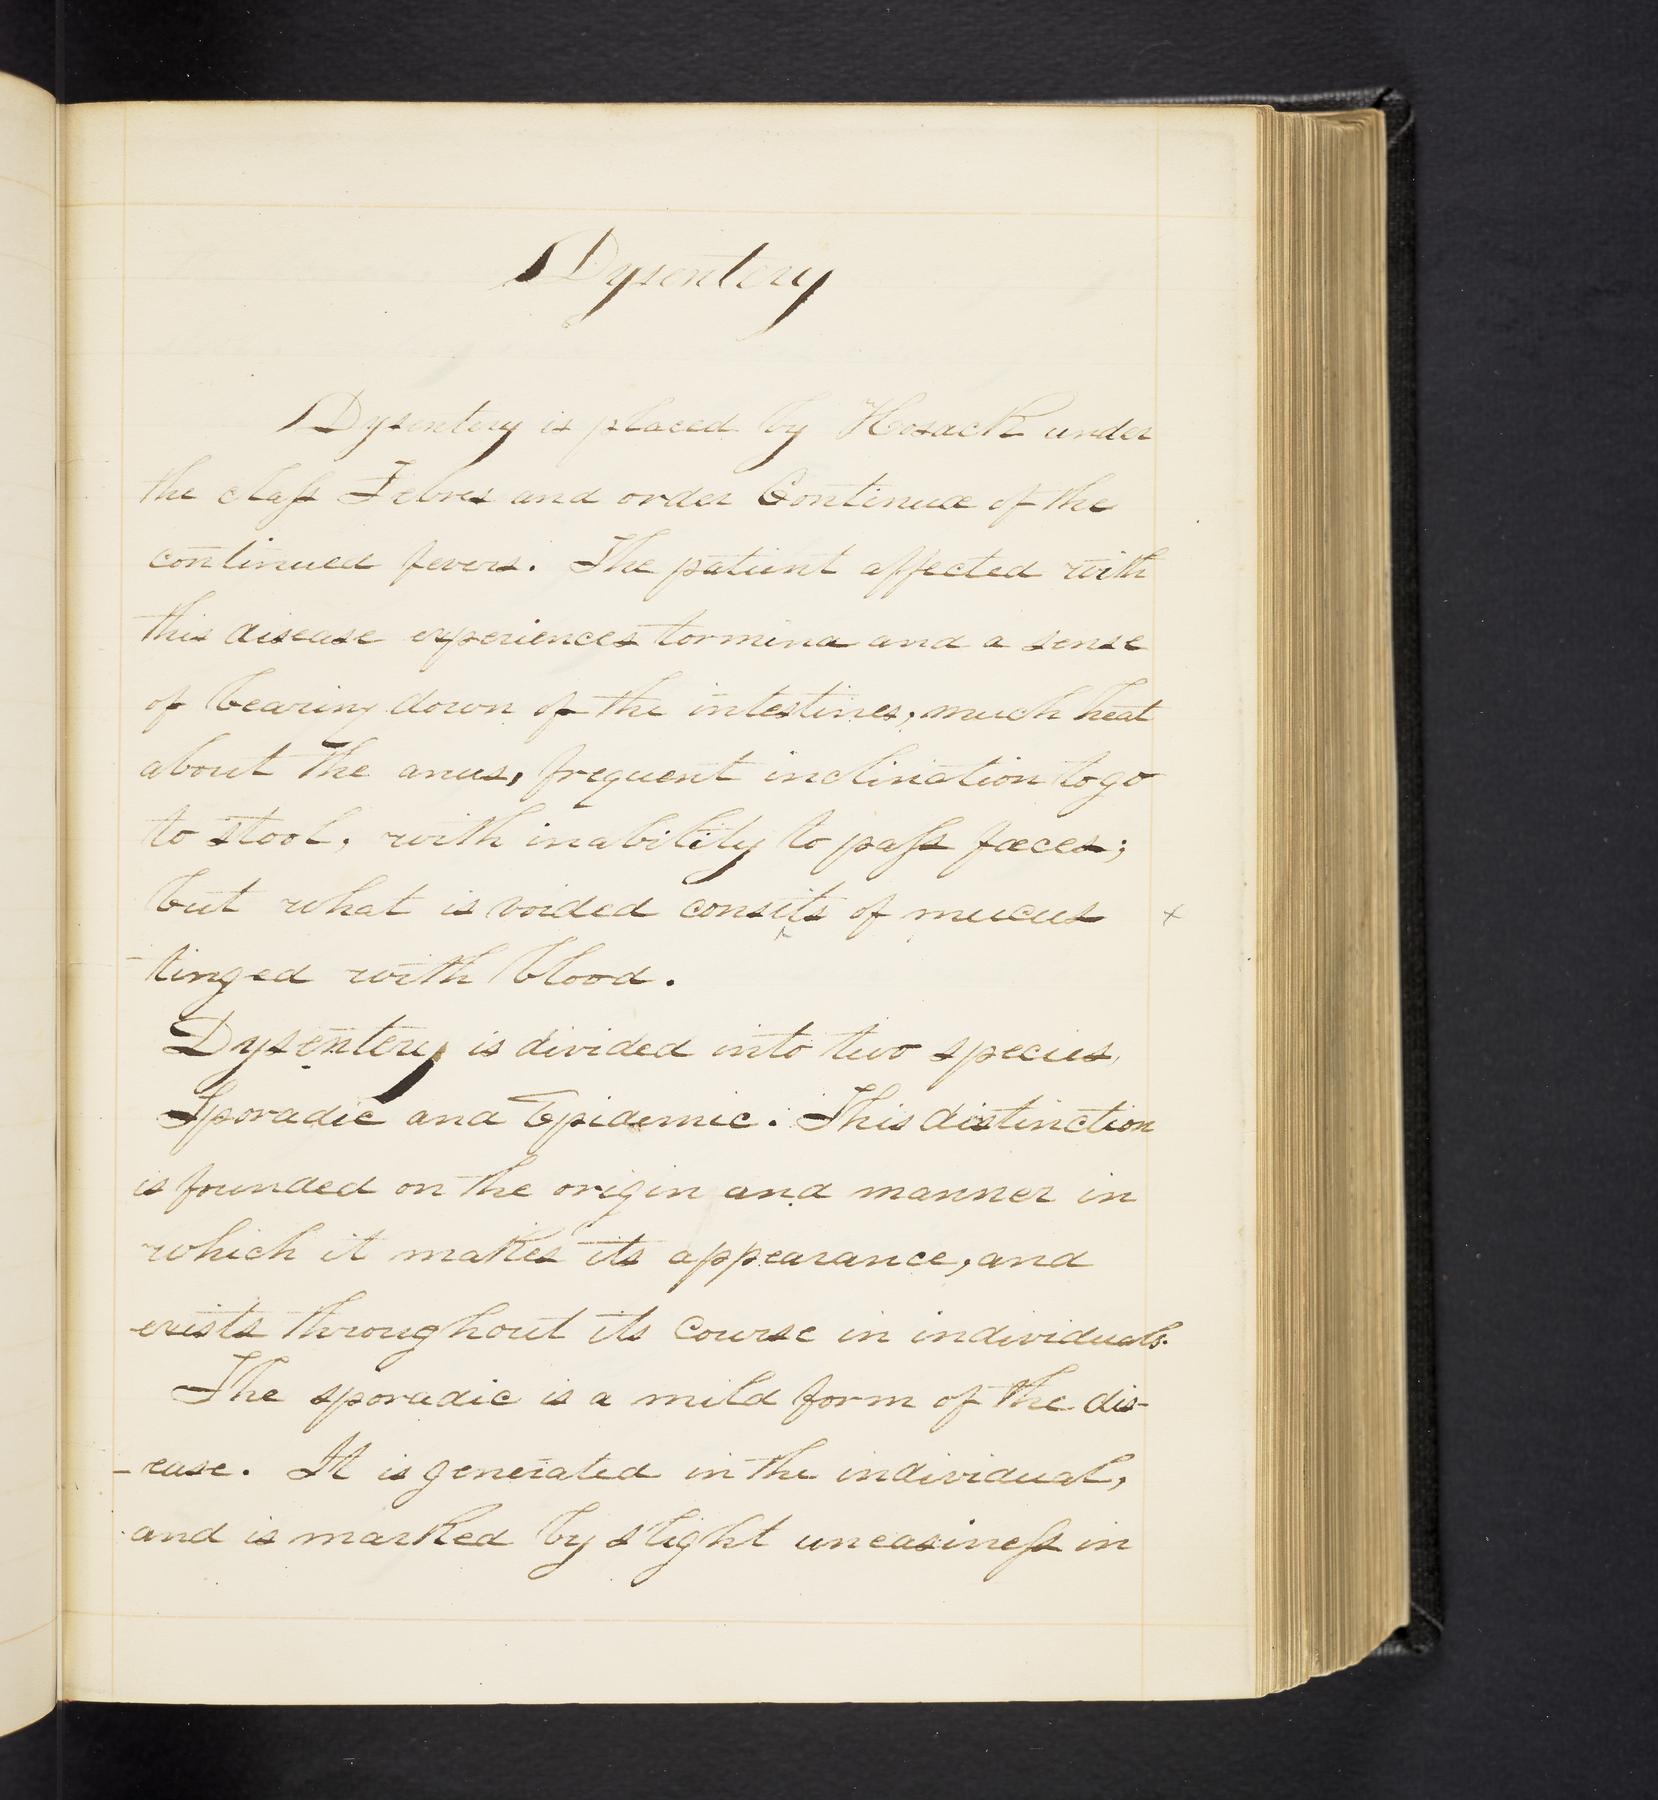 Dysentery
Dysentery is placed by Hosack under
the claſs Febres and order Continuæ of the
continued fevers. The patient affected with
this disease experiences tormina and a sense
of bearing down of the intestines; much heat
about the anus, frequent inclination to go
to stool, with inability to paſs fæces;
but what is voided consits of mucus ×
tinged with blood.
Dysentery is divided into two species,
Sporadic and Epidemic. This distinction
is founded on the origin and manner in
which it makes its appearance, and
exists throughout its course in individuals.
The sporadic is a mild form of the dis-
-ease. It is generated in the individual,
and is marked by slight uneasineſs in